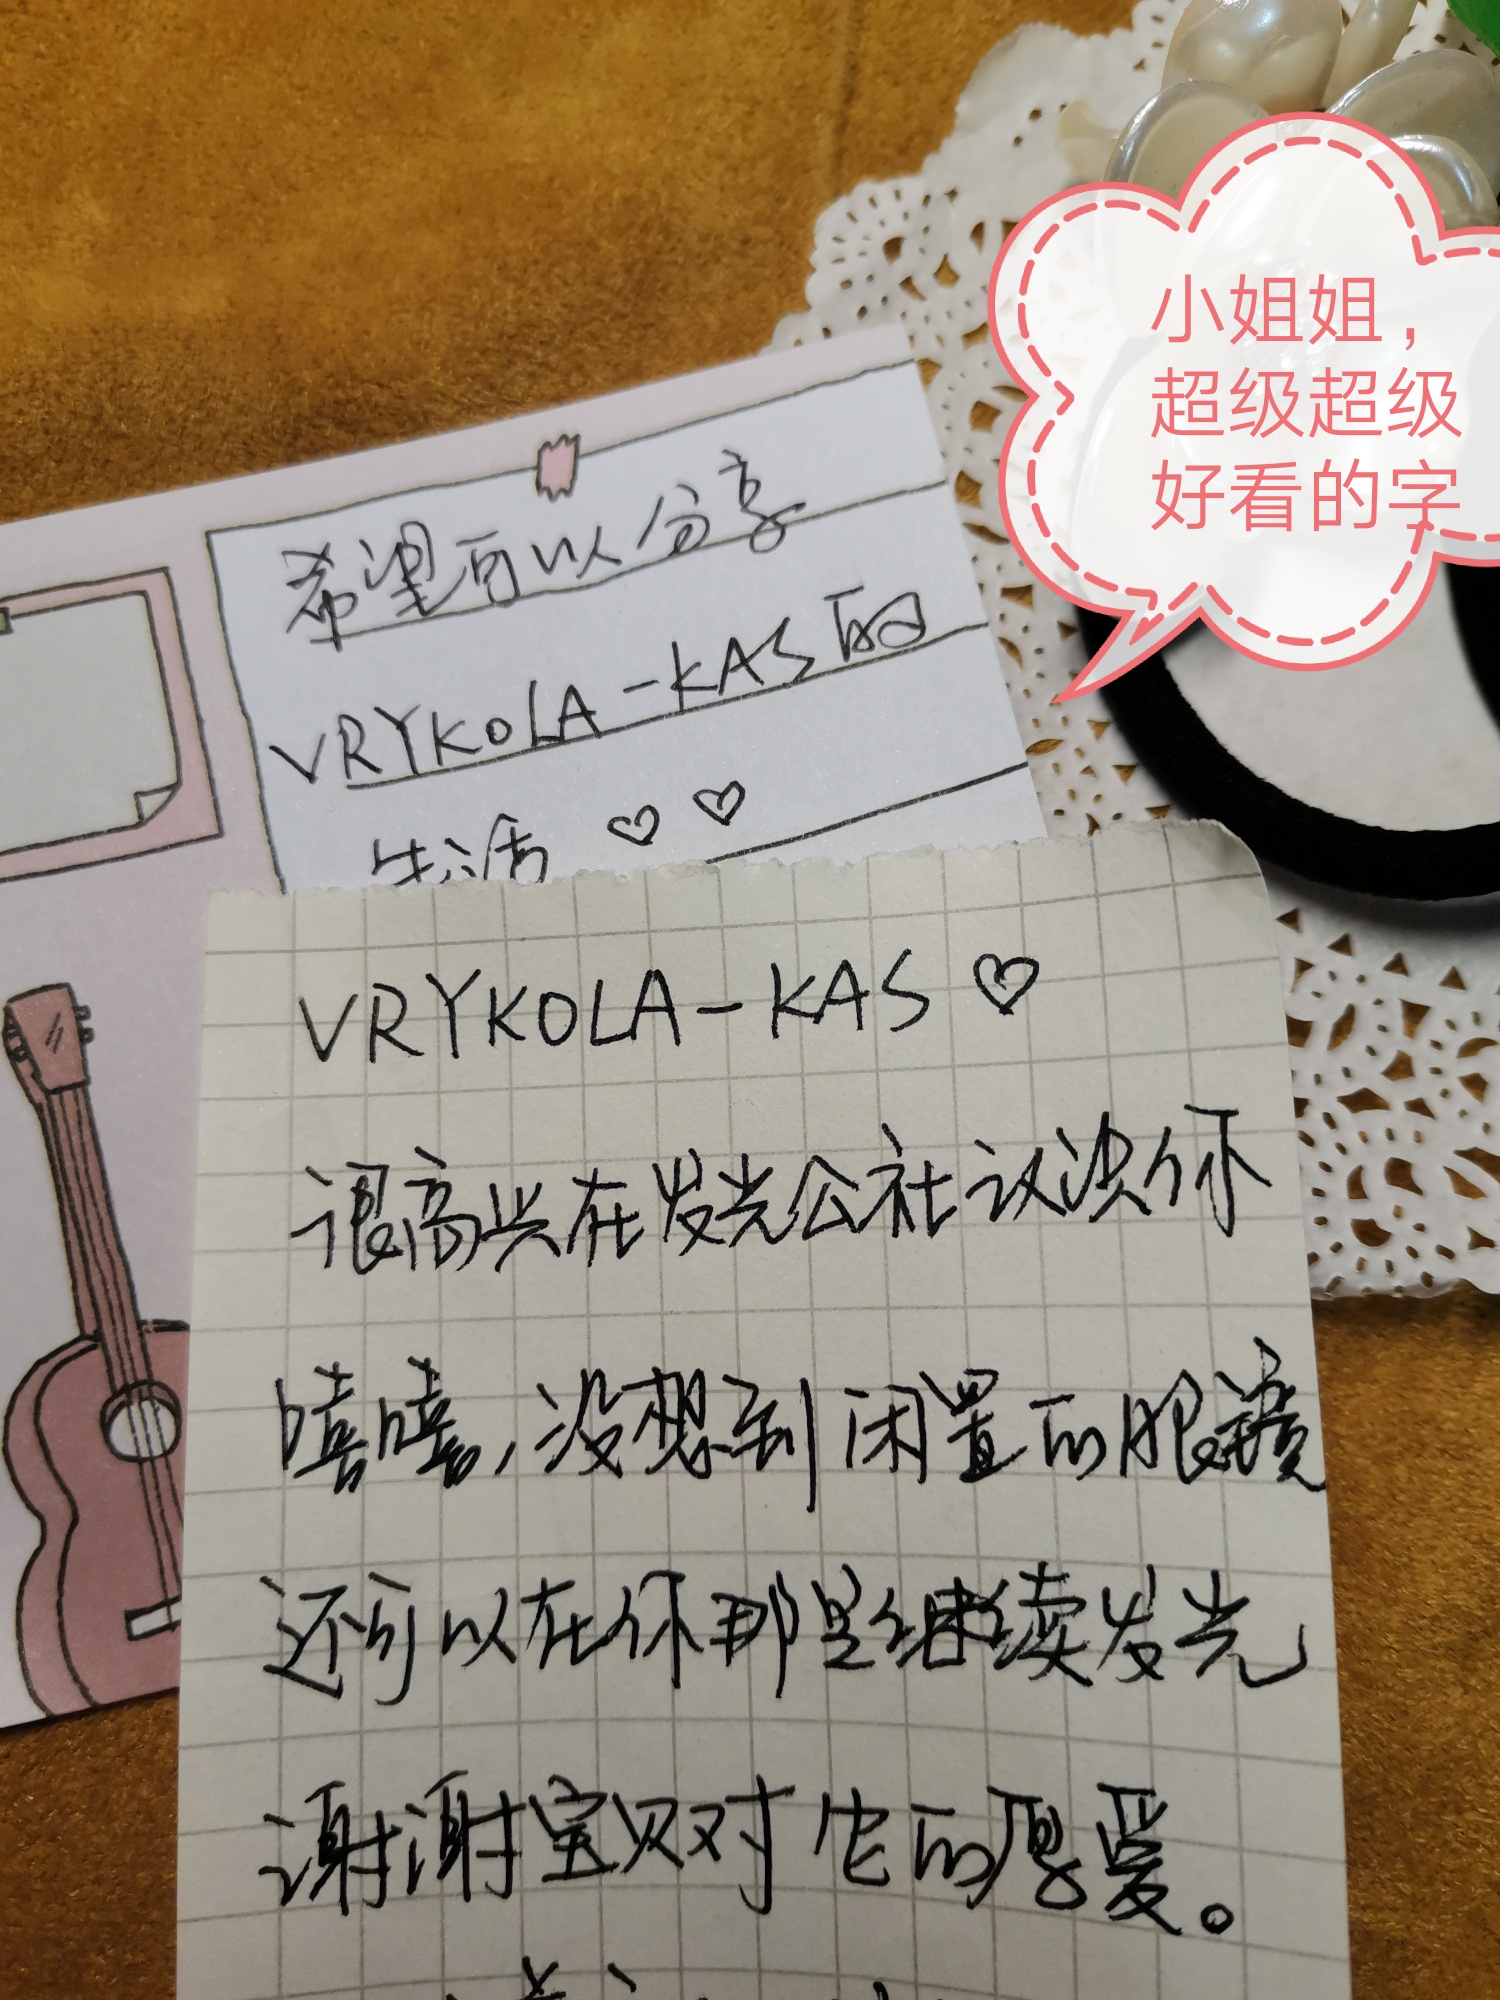 小姐姐，
超级超级
好看的字
希望可以分享
VRYKOLA-KAS的
生活♡♡
VRYKOLA-KAS♡
很高兴在发光公社议决你
嘻嘻，没想到闲置的眼镜
还可以在你那里继续发光
谢谢宝贝对它的厚爱。